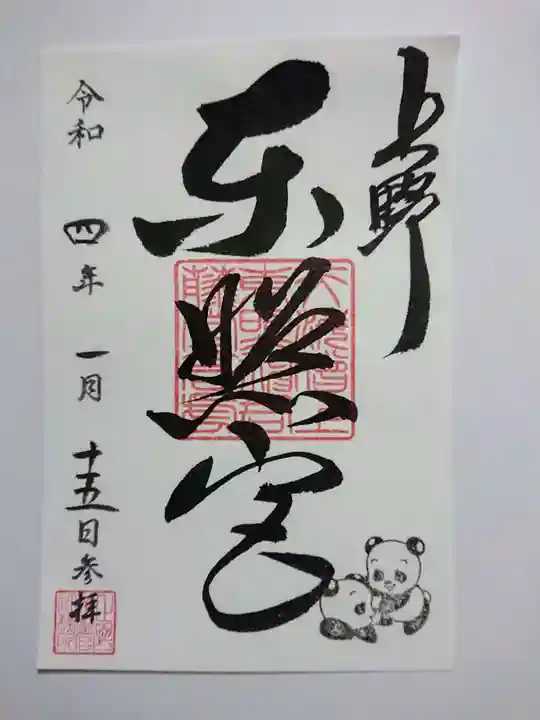 上野
東照宮
令和四年一月十五日参拝